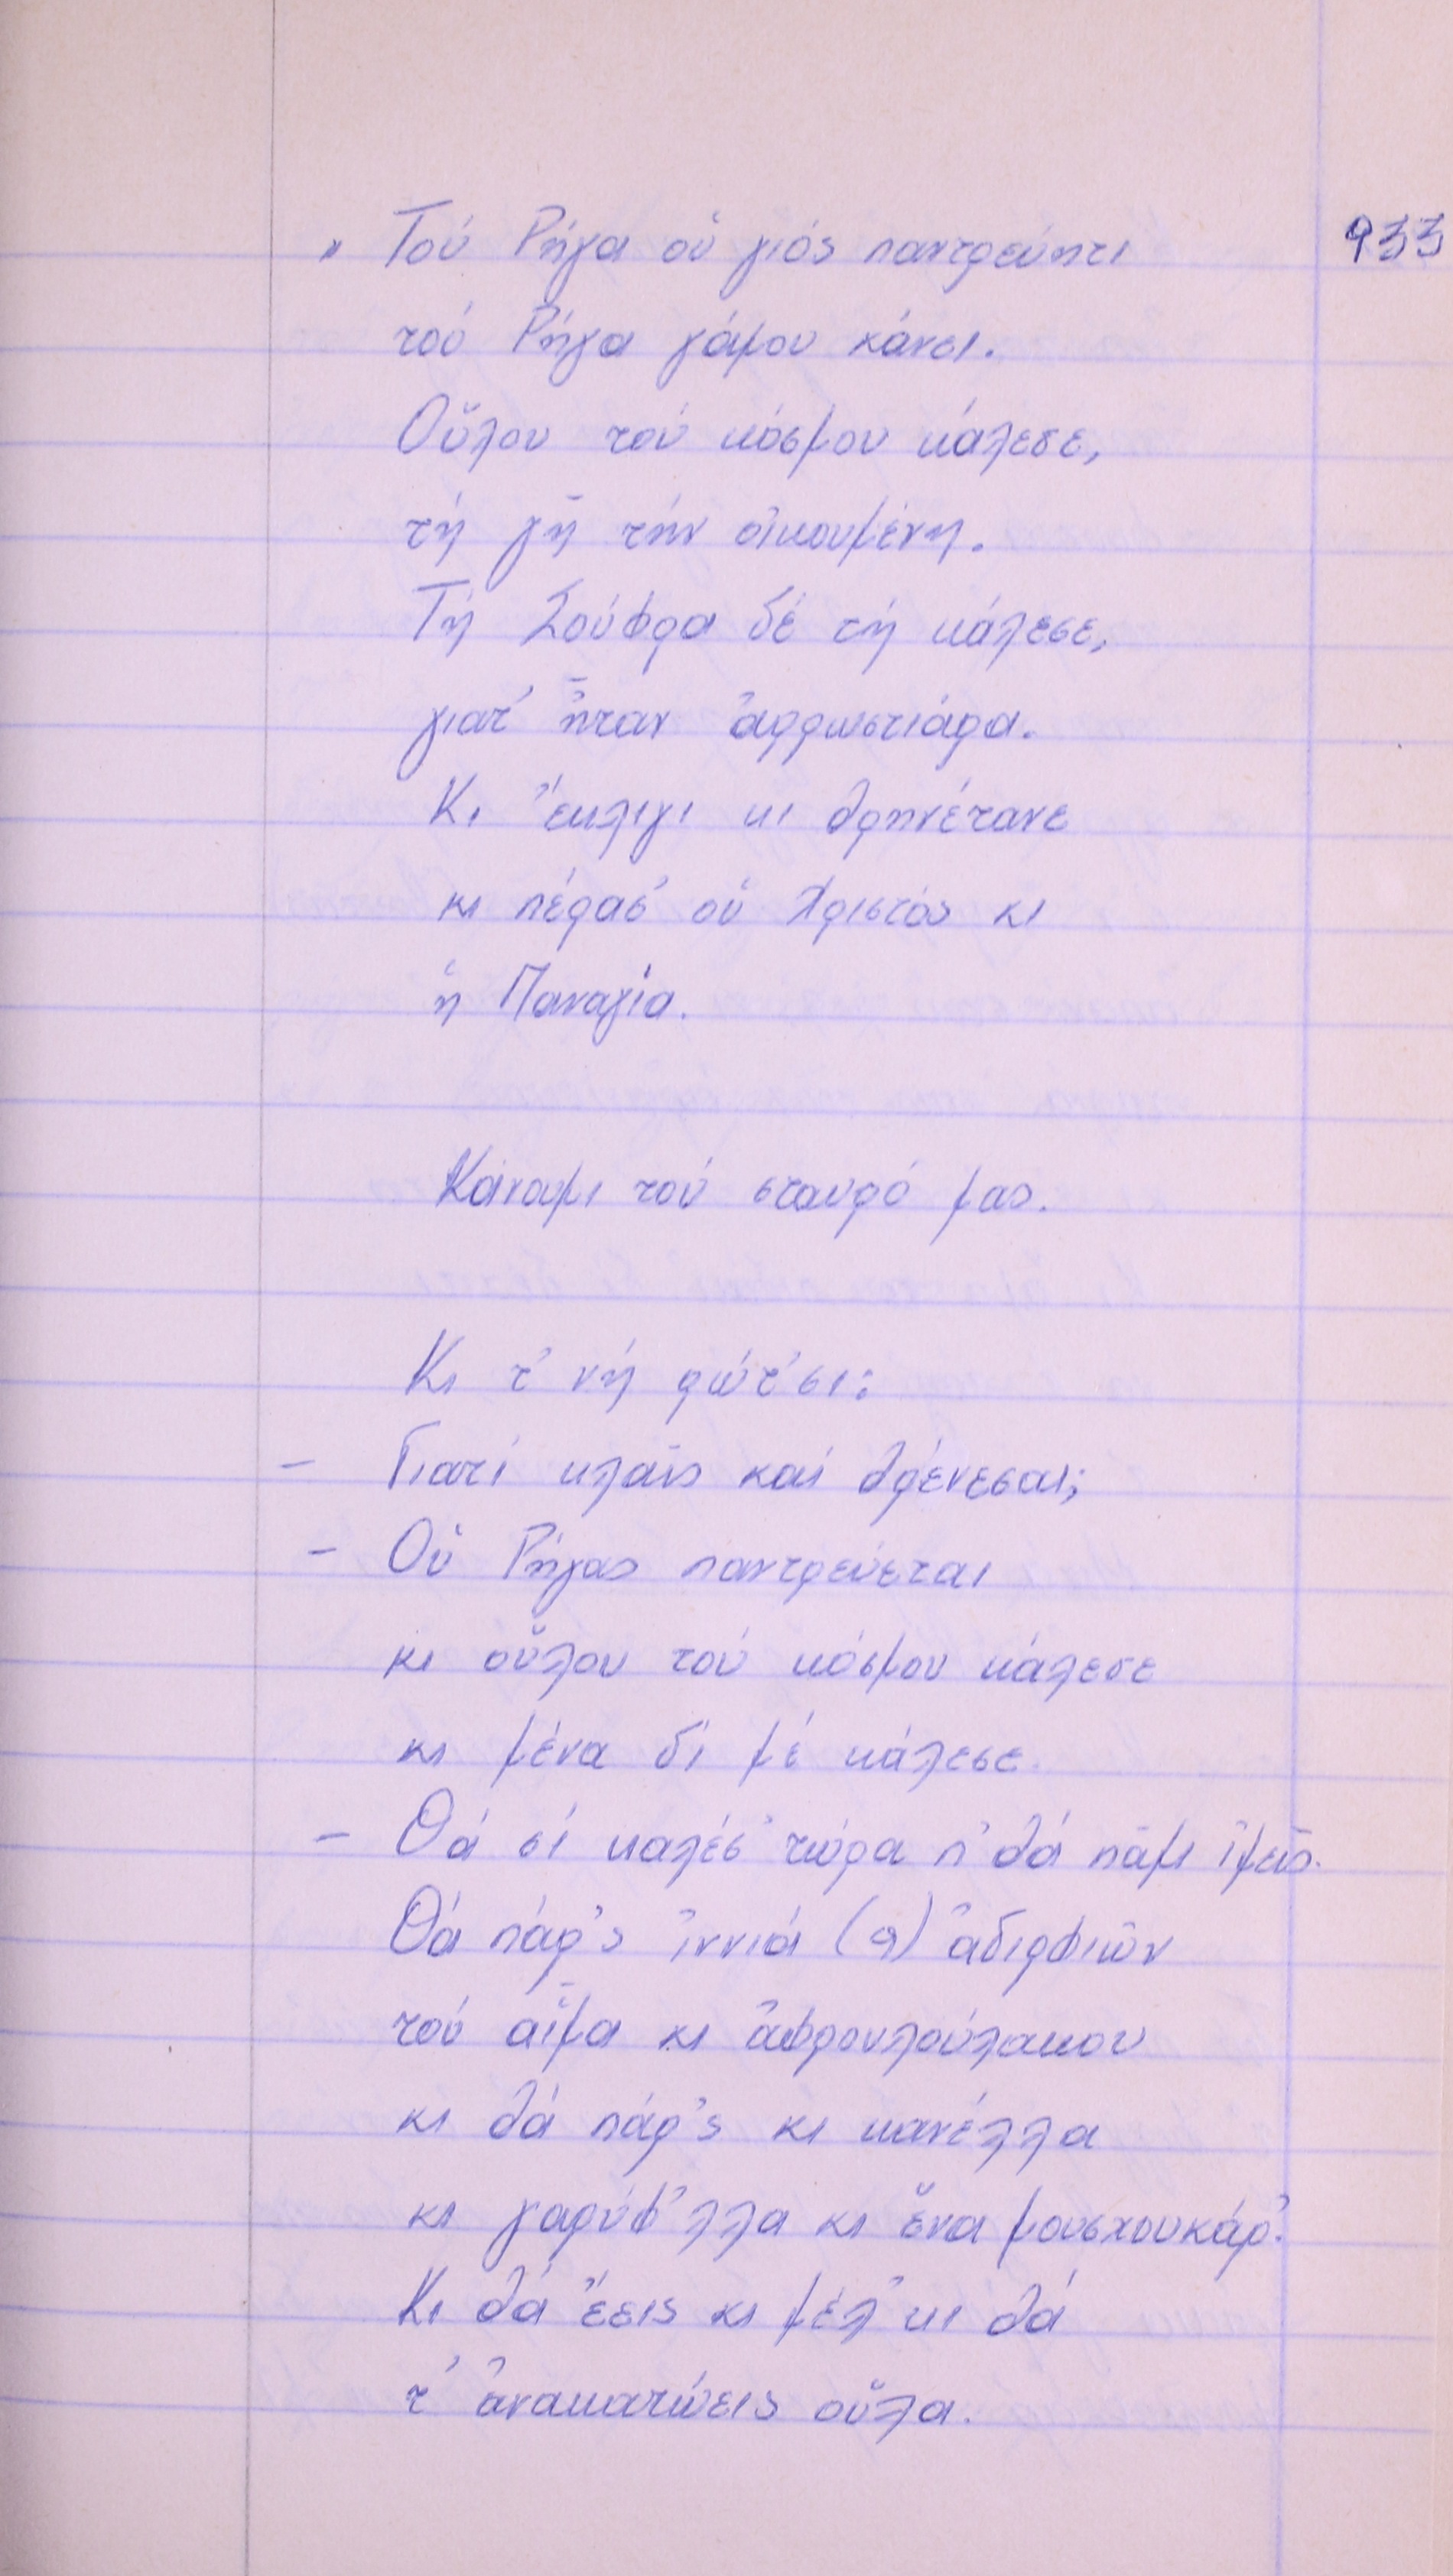 933
» Τού Ρήγα οὑ γιός παντρεύητι
τού Ρήγα γάμου κάνει.
Οὕλου τού κόσμου κάλεσε,
τή γῆ τήν οἰκουμένη.
Τή Σούφρα δέ τή κάλεσε,
γιατ' ἦταν ἀρρωστιάρα.
Κι ἔκλιγι κι θρηνέτανε
κι πέρασ' οὑ Χριστός κι
ἡ Παναγία.
Κάναμι τού σταυρό μας.
Κι τ' νή ρώτ'σι:
– Γιατί κλαῖς καί θρένεσαι;
– Οὑ Ρήγας παντρεύεται
κι οὕλου τού κόσμου κάλεσε
κι μένα δί μέ κάλεσε.
– Θά σί καλέσ' τώρα π' θά πᾶμι ἰμεῖς.
Θά πάρ'ς ἰννιά (9) ἀδιρφιῶν
τού αἷμα κι ἀφρουλούλακου
κι θά πάρ'ς κι κανέλλα
κι γαρύφ'λλα κι ἕνα μουσχουκάρ'.
Κι θά ἔεις κι μέλ' κι θά
τ' ἀνακατώεις οὕλα.